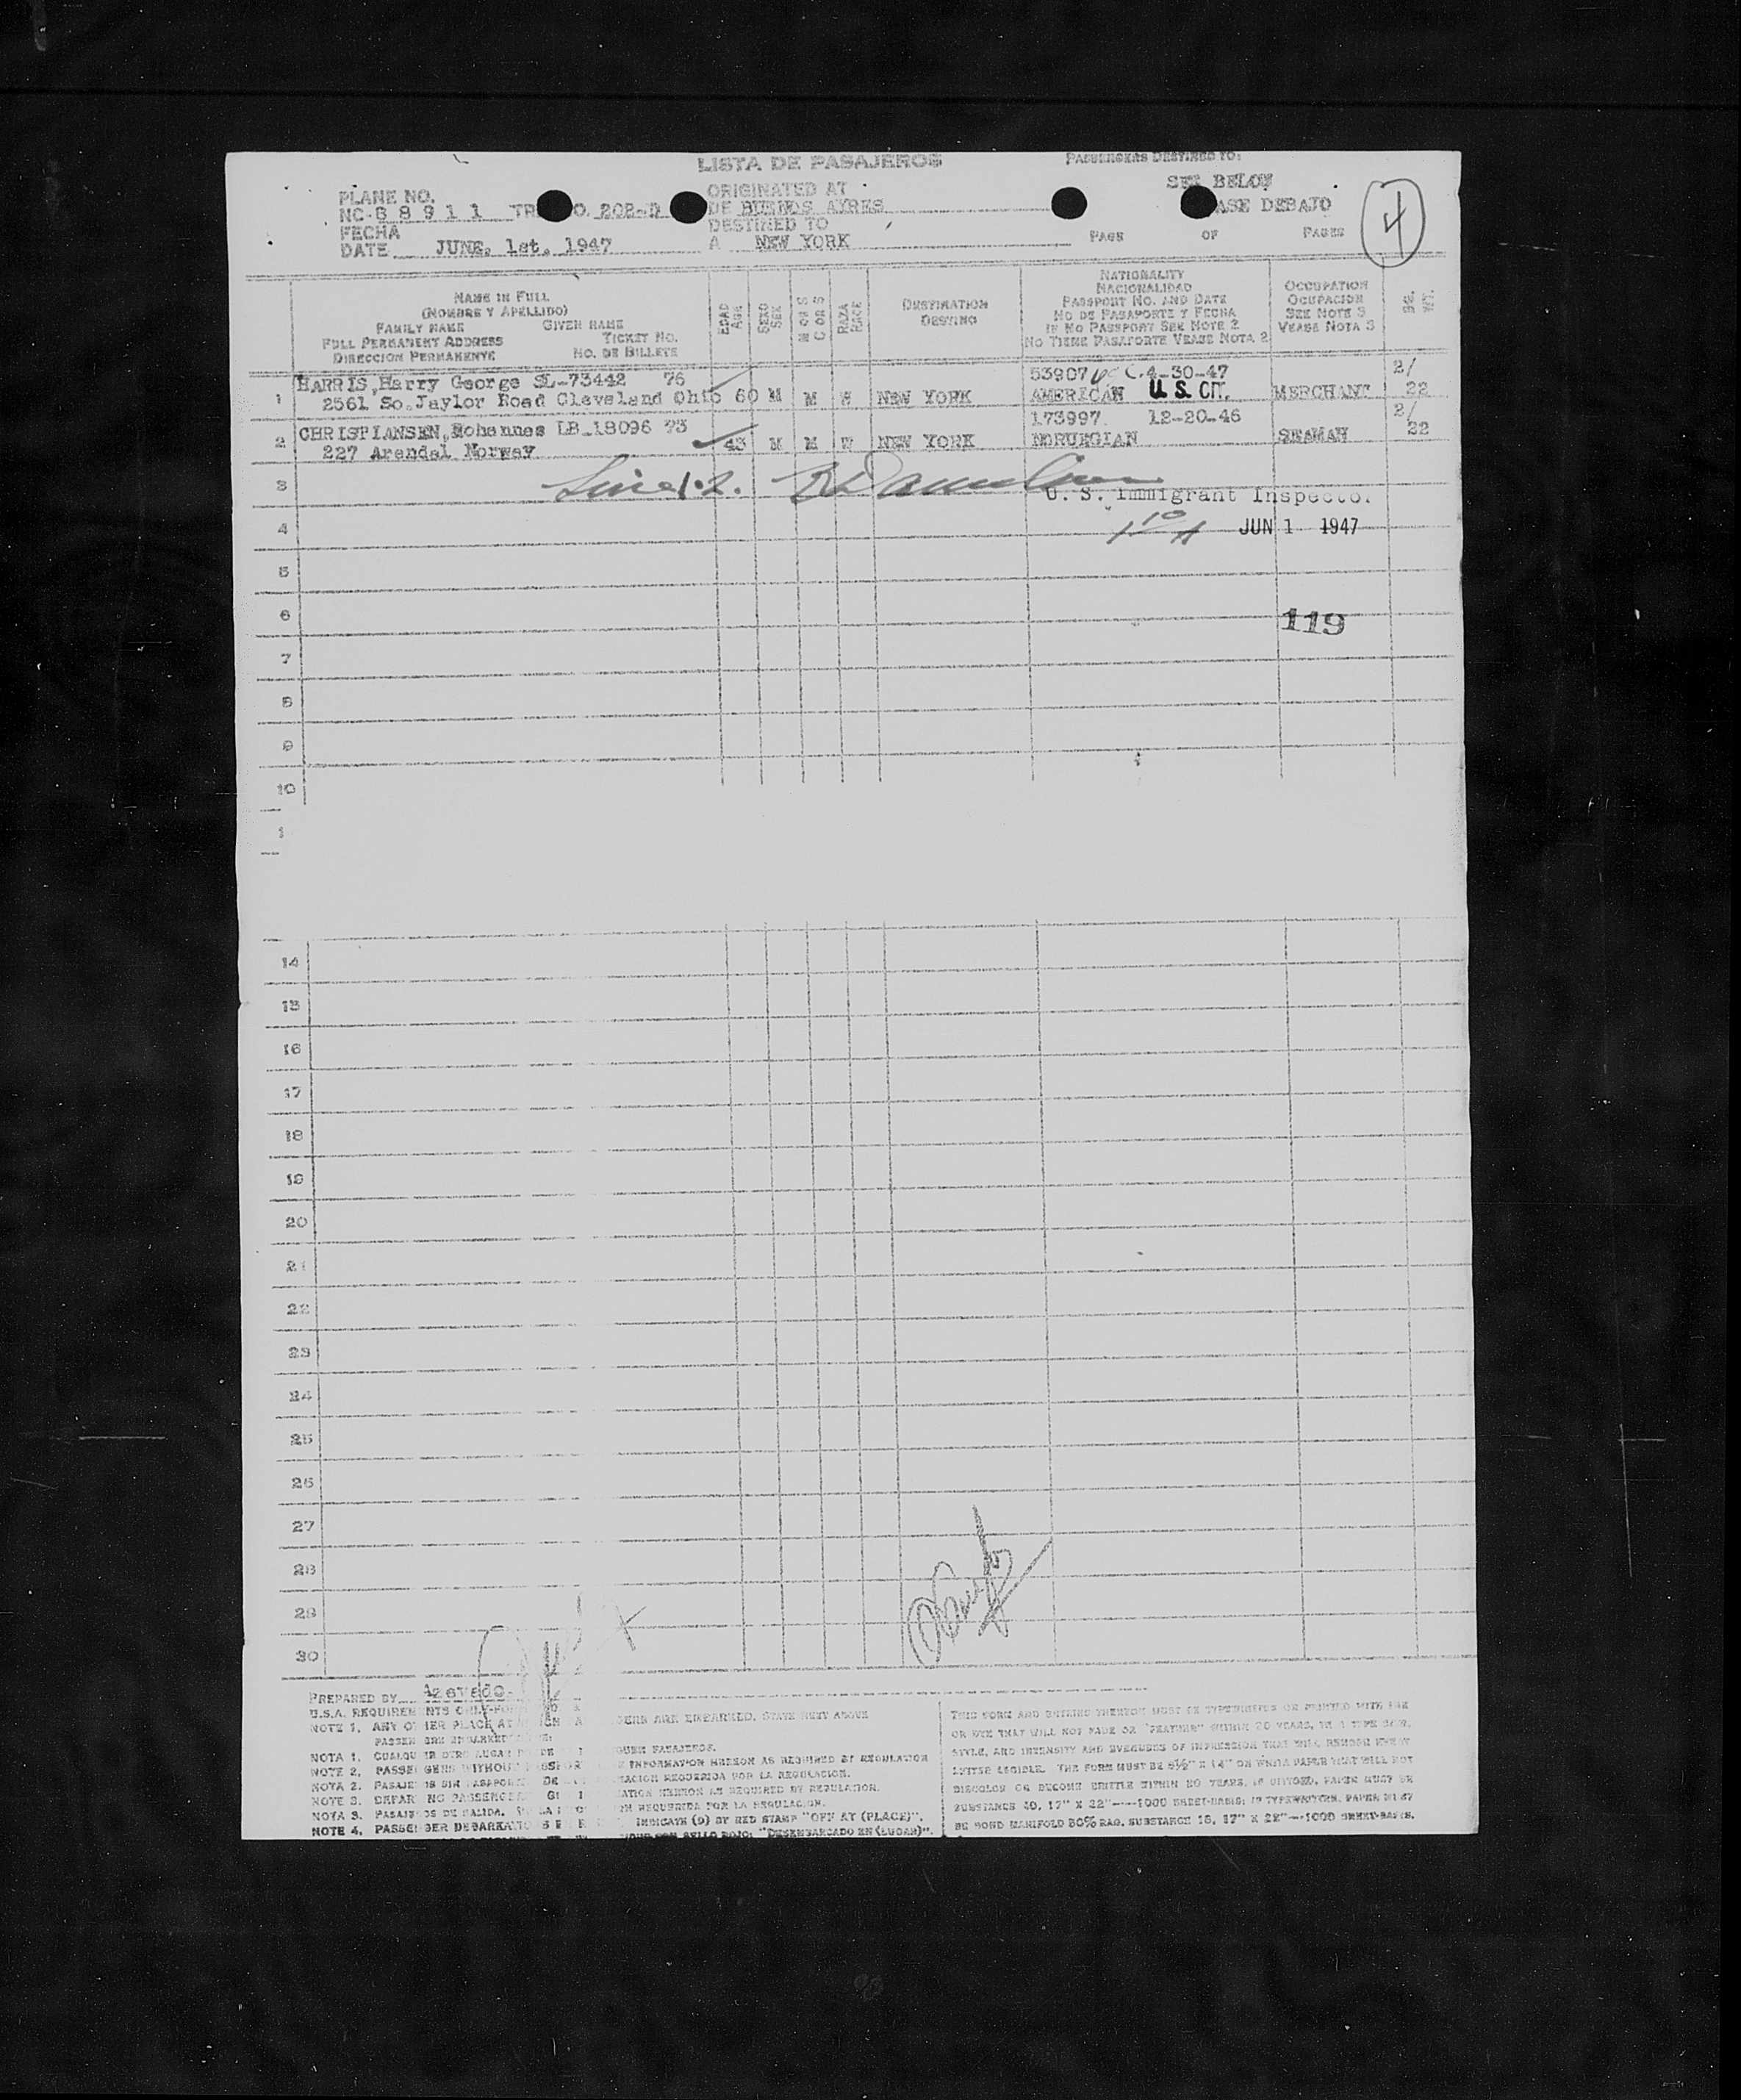 LISTA DE PASAJEROS
PASSENGERS DESTINED TO:
SEE BELOW
ASE DEBAJO
4
PLANE NO.
NC-88911 TR O. 202-
ORIGINATED AT
DE BUENOS AYRES
FECHA
DATE JUNE, 1st, 1947
DESTINED TO
A NEW YORK
PAGE OF PAGES
NAME IN FULL
(NOMBRE Y APELLIDO)
FAMILY NAME GIVEN NAME
FULL PERMANENT ADDRESS TICKET NO.
DIRECCION PERMANENTE NO. DE BILLETE
EDAD
AGE
SEXO
SEX
M OR S
C OR S
RAZA
RACE
DESTINATION
DESTINO
NATIONALITY
NACIONALIDAD
PASSPORT NO. AND DATE
NO DE PASAPORTE Y FECHA
IF NO PASSPORT SEE NOTE 2
NO TIENE PASAPORTE VEASE NOTA 2
OCCUPATION
OCUPACION
SEE NOTE 3
VEASE NOTA 3
1 HARRIS, Harry George SL-73442 76 53907 4-30-47 2/
2561 So. Jaylor Road Cleveland Ohio 60 M M W NEW YORK AMERICAN U.S. CIT. MERCHANT 22
2 CHRISTIANSEN, Mohannes LB-18096 73 173997 12-20-46 2/
227 Arendal Norway 43 M M W NEW YORK NORUEGIAN SEAMAN 22
3 Line 1-2.
U. S. Immigrant Inspector
4 JUN 1 1947
5
6 119
7
8
9
10
1
14
15
16
17
18
19
20
21
22
23
24
25
26
27
28
29
30
PREPARED BY Azevedo
U.S.A. REQUIREMENTS ONLY-FO
NOTE 1. ANY OTHER PLACE AT GERS ARE EMBARKED, STATE NEXT ABOVE
NOTA 1. CUALQUIER OTRO LUGAR DE QUEN PASAJEROS.
NOTE 2. PASSENGERS WITHOUT PASSPOR INFORMATION HEREON AS REQUIRED BY REGULATION
NOTA 2. PASAJEROS SIN PASAPOR DE MACION REQUERIDA POR LA REGULACION.
NOTE 3. DEPARTING PASSENGER GI MATION HEREON AS REQUIRED BY REGULATION.
NOTA 3. PASAJEROS DE SALIDA. LA REQUERIDA POR LA REGULACION.
NOTE 4. PASSENGER DEBARKATIO INDICATE (D) BY RED STAMP "OFF AT (PLACE)".
CON SELLO ROJO: "DESEMBARCADO EN (LUGAR)".
THIS FORM AND ENTRIES THEREON MUST BE TYPEWRITTEN OR PRINTED WITH INK
OR DYE THAT WILL NOT FADE OR "FEATHER" WITHIN 20 YEARS, IN A TYPE SIZE,
STYLE, AND INTENSITY AND EVENNESS OF IMPRESSION THAT WILL RENDER EVERY
LETTER LEGIBLE. THE FORM MUST BE 8½" X 14" ON WHITE PAPER THAT WILL NOT
DISCOLOR OR BECOME BRITTLE WITHIN 20 YEARS. IF DITTOED, PAPER MUST BE
SUBSTANCE 40, 17" X 22"----1000 SHEET-BASIS; IF TYPEWRITTEN, PAPER MUST
BE BOND MANIFOLD 50% RAG, SUBSTANCE 18, 17" X 22"---1000 SHEET-BASIS.